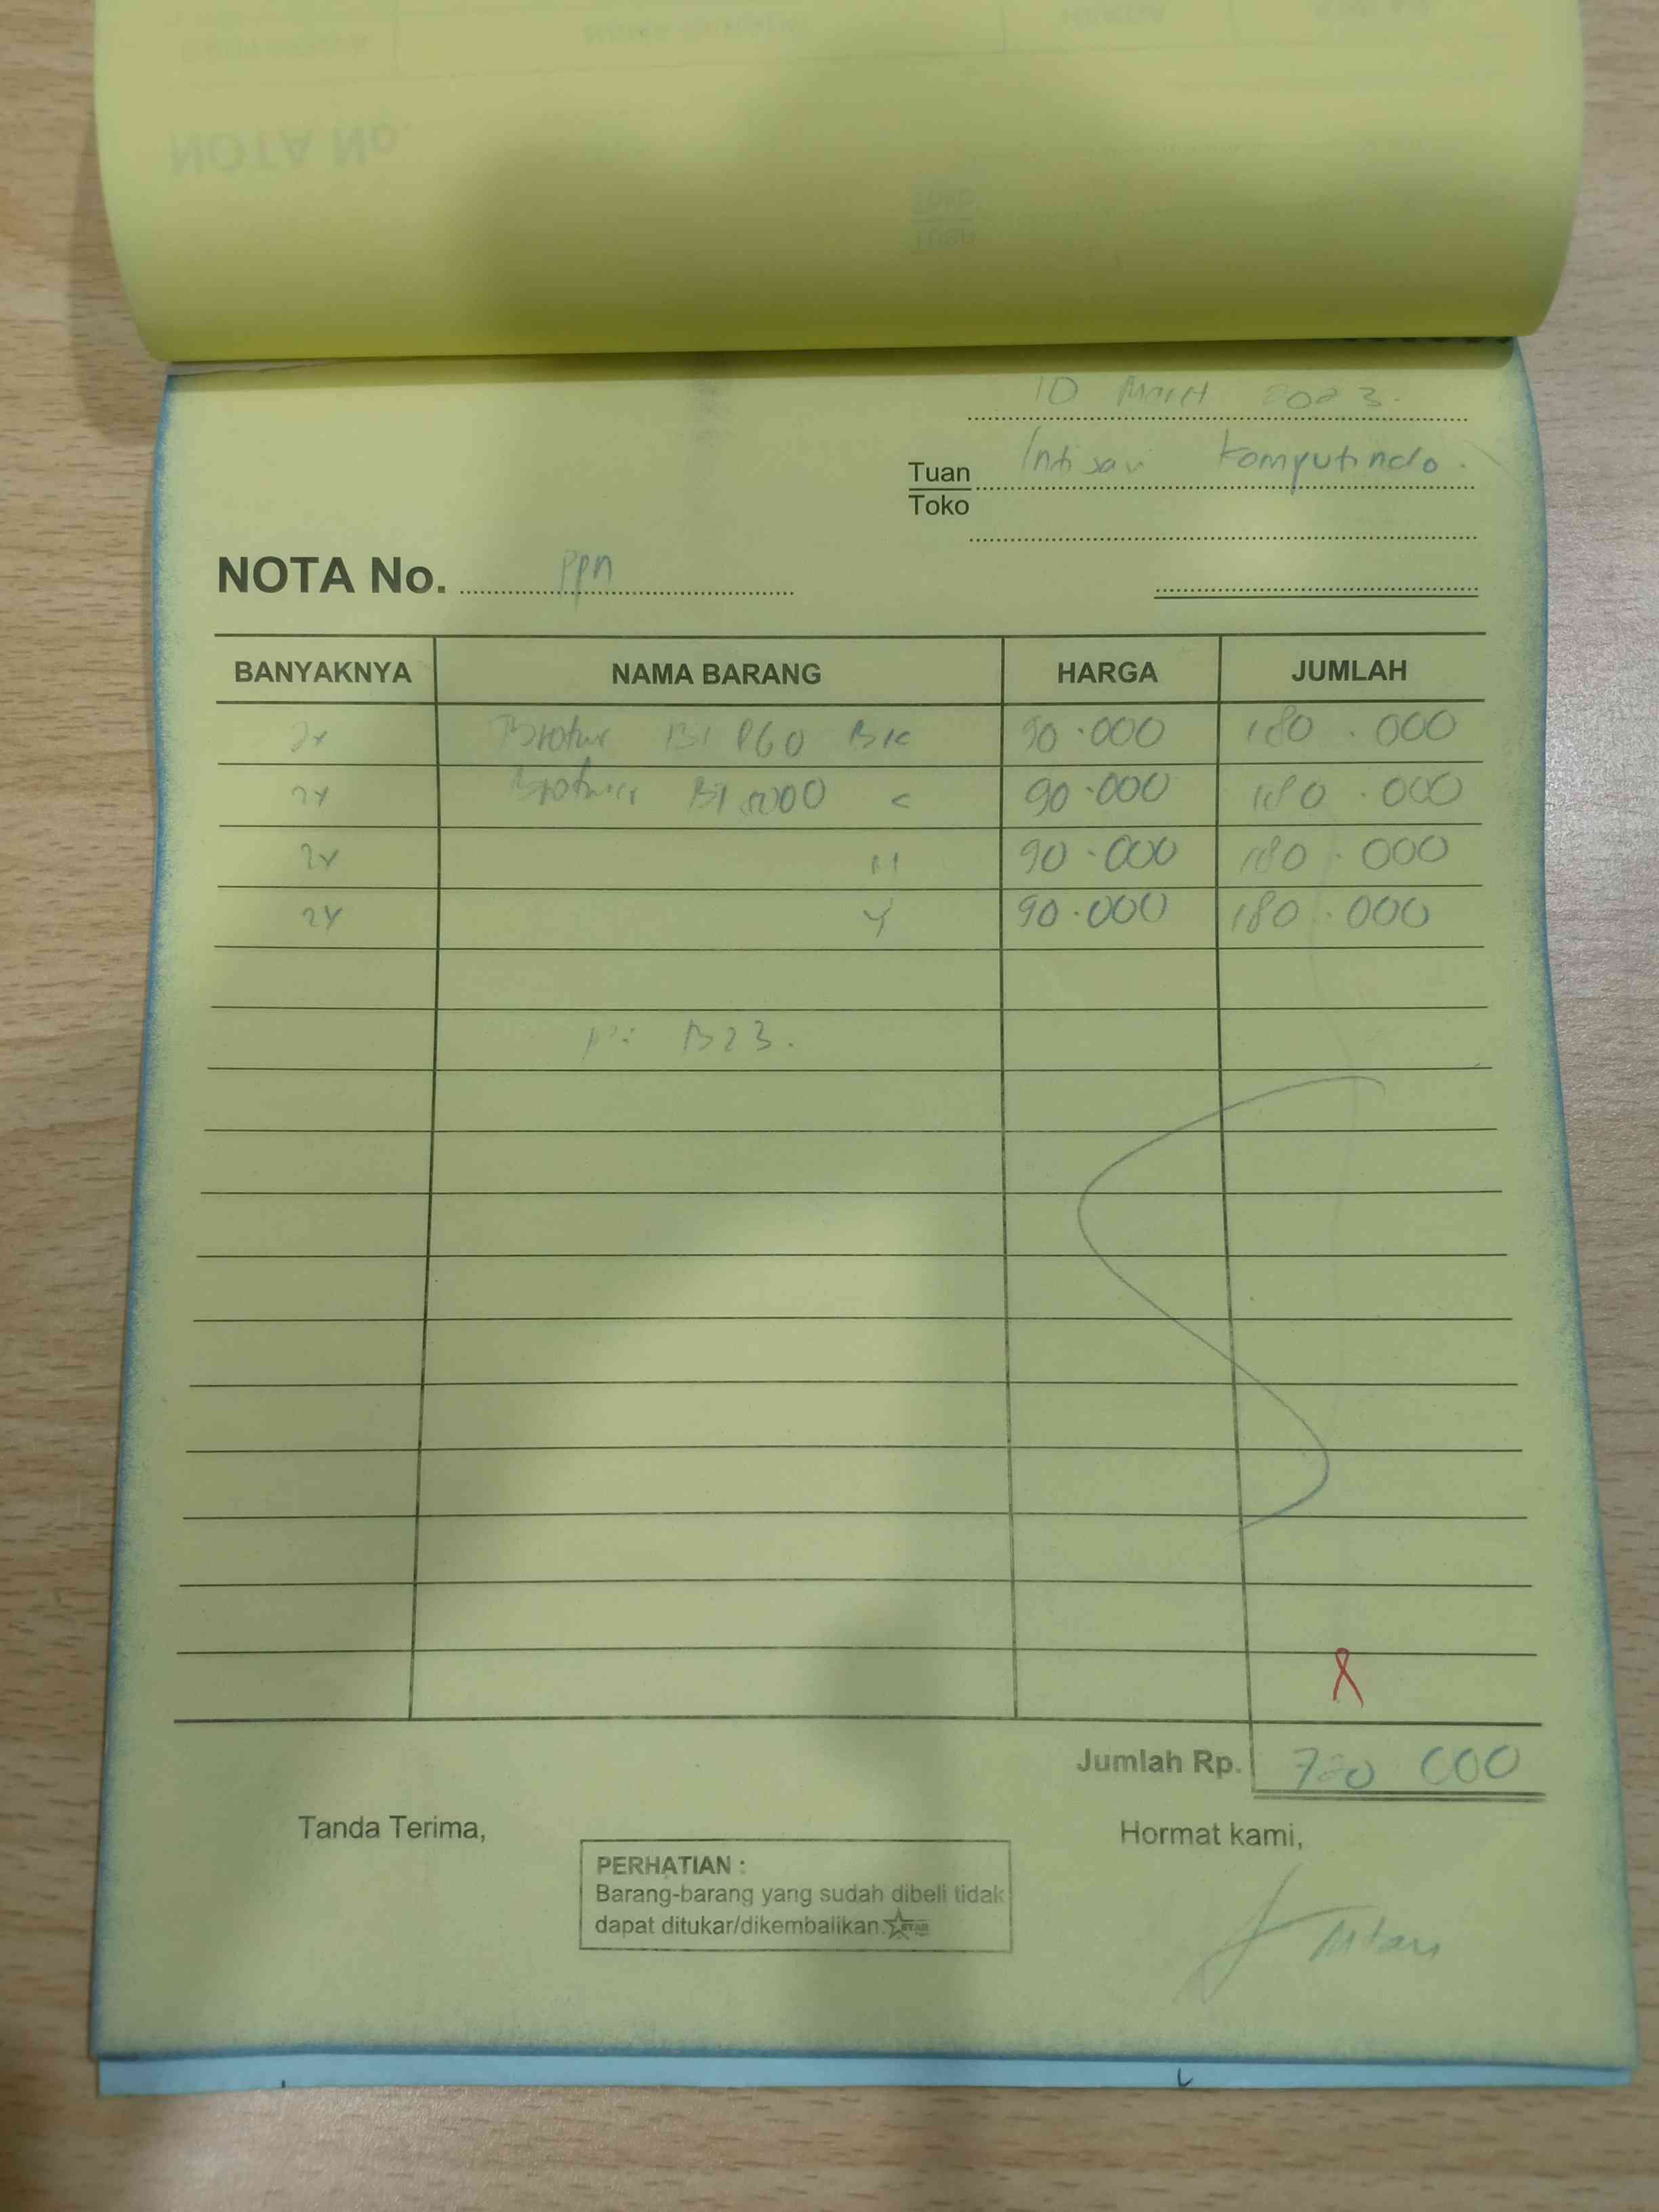 10 Maret 2023.
Tuan Intisari Komputindo.
Toko
NOTA No. PPN
BANYAKNYA NAMA BARANG HARGA JUMLAH
2x Brother BT D60 BK 90.000 180.000
2x Brother BT 5000 C 90.000 180.000
2x M 90.000 180.000
2x Y 90.000 180.000
B23.
Jumlah Rp. 720 000
Tanda Terima, Hormat kami,
PERHATIAN :
Barang-barang yang sudah dibeli tidak
dapat ditukar/dikembalikan.